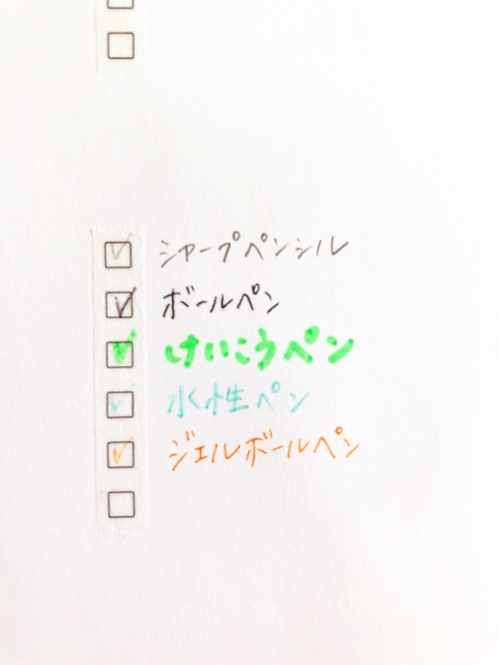 シャープペンシル
ボールペン
けいこうペン
水性ペン
ジェルボールペン